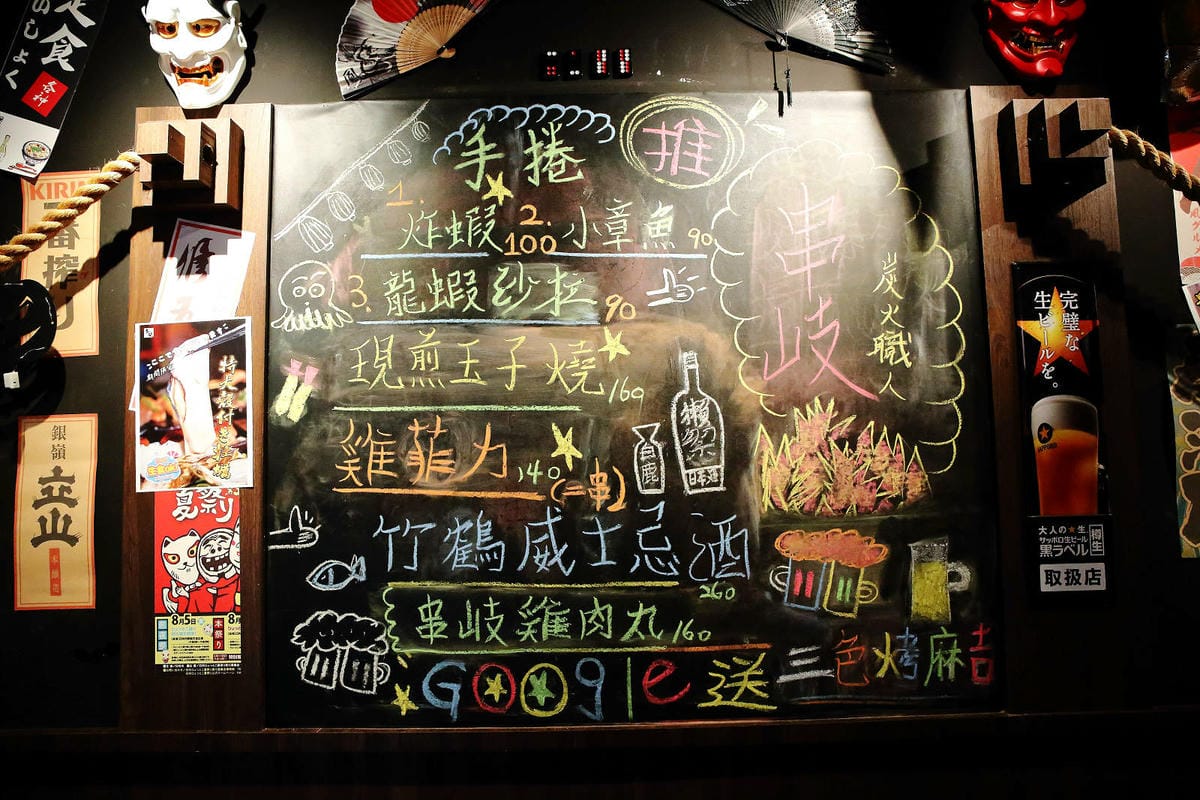 定食
いしょく
各种
KIRIN
一番搾り
銀嶺
立山
本醸造
特大殻付き牡蠣
夏祭り
8月5日
8月
本祭り
手捲
推
1.
炸蝦 100
2.
小章魚 90
3.
龍蝦沙拉 90
現煎玉子燒 160
雞菲力 140 (一串)
竹鶴威士忌酒 260
串岐雞肉丸 160
Google 送 三色烤麻吉
白鹿
獺祭
串岐
炭火職人
完璧な
生ビールを。
大人の★生
サッポロ生ビール
黒ラベル
樽生
取扱店